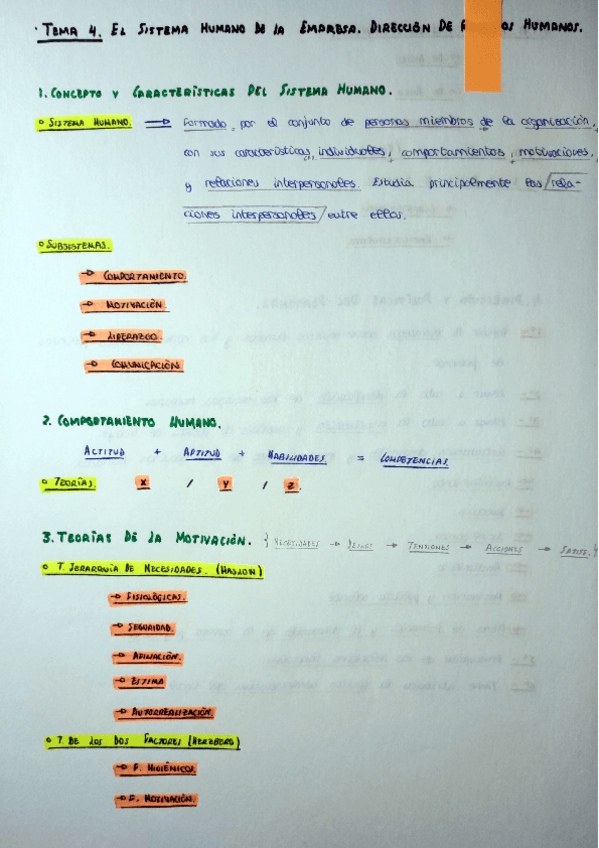 · TEMA 4. EL SISTEMA HUMANO DE LA EMPRESA. DIRECCIÓN DE HUMANOS.
1. CONCEPTO Y CARACTERÍSTICAS DEL SISTEMA HUMANO.
SISTEMA HUMANO. → Formado por el conjunto de personas miembros de la organización,
con sus características individuales, comportamientos, motivaciones,
y relaciones interpersonales. Estudia principalmente las /rela-
ciones interpersonales/ entre ellos.
SUBSISTEMAS.
→ COMPORTAMIENTO.
→ MOTIVACIÓN.
→ LIDERAZGO.
→ COMUNICACIÓN.
2. COMPORTAMIENTO HUMANO.
ACTITUD + APTITUD + HABILIDADES = COMPETENCIAS.
TEORÍAS. X / Y / Z.
3. TEORÍAS DE LA MOTIVACIÓN. { NECESIDADES → → TENSIONES → ACCIONES →
T. JERARQUÍA DE NECESIDADES. (MASLOW)
→ FISIOLÓGICAS.
→ SEGURIDAD.
→ AFILIACIÓN.
→ ESTIMA
→ AUTORREALIZACIÓN.
T. DE LOS DOS FACTORES (HERZBERG)
→ F. HIGIÉNICOS.
→ F. MOTIVACIÓN.